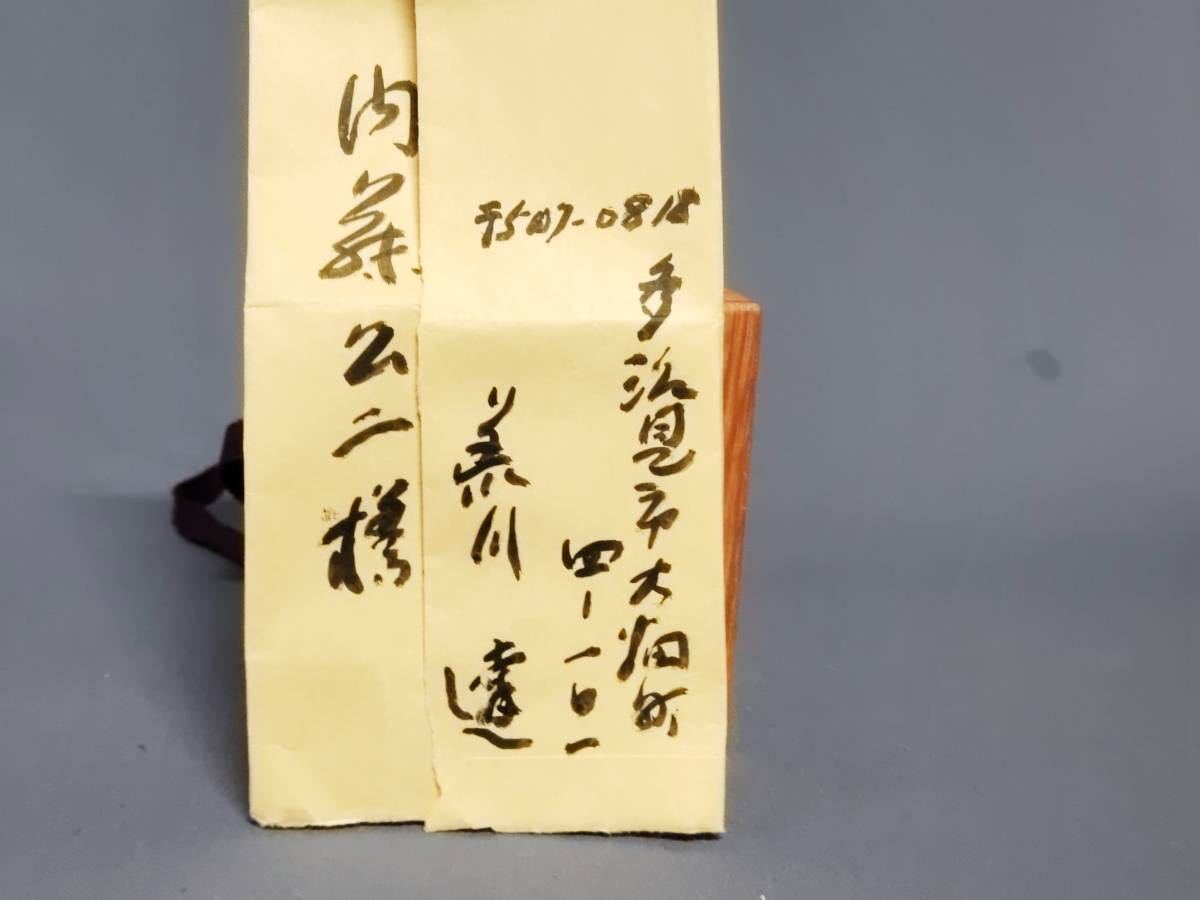 〒507-0818
多治見市大畑町
四ー一〇一
荒川 達
内藤公二様